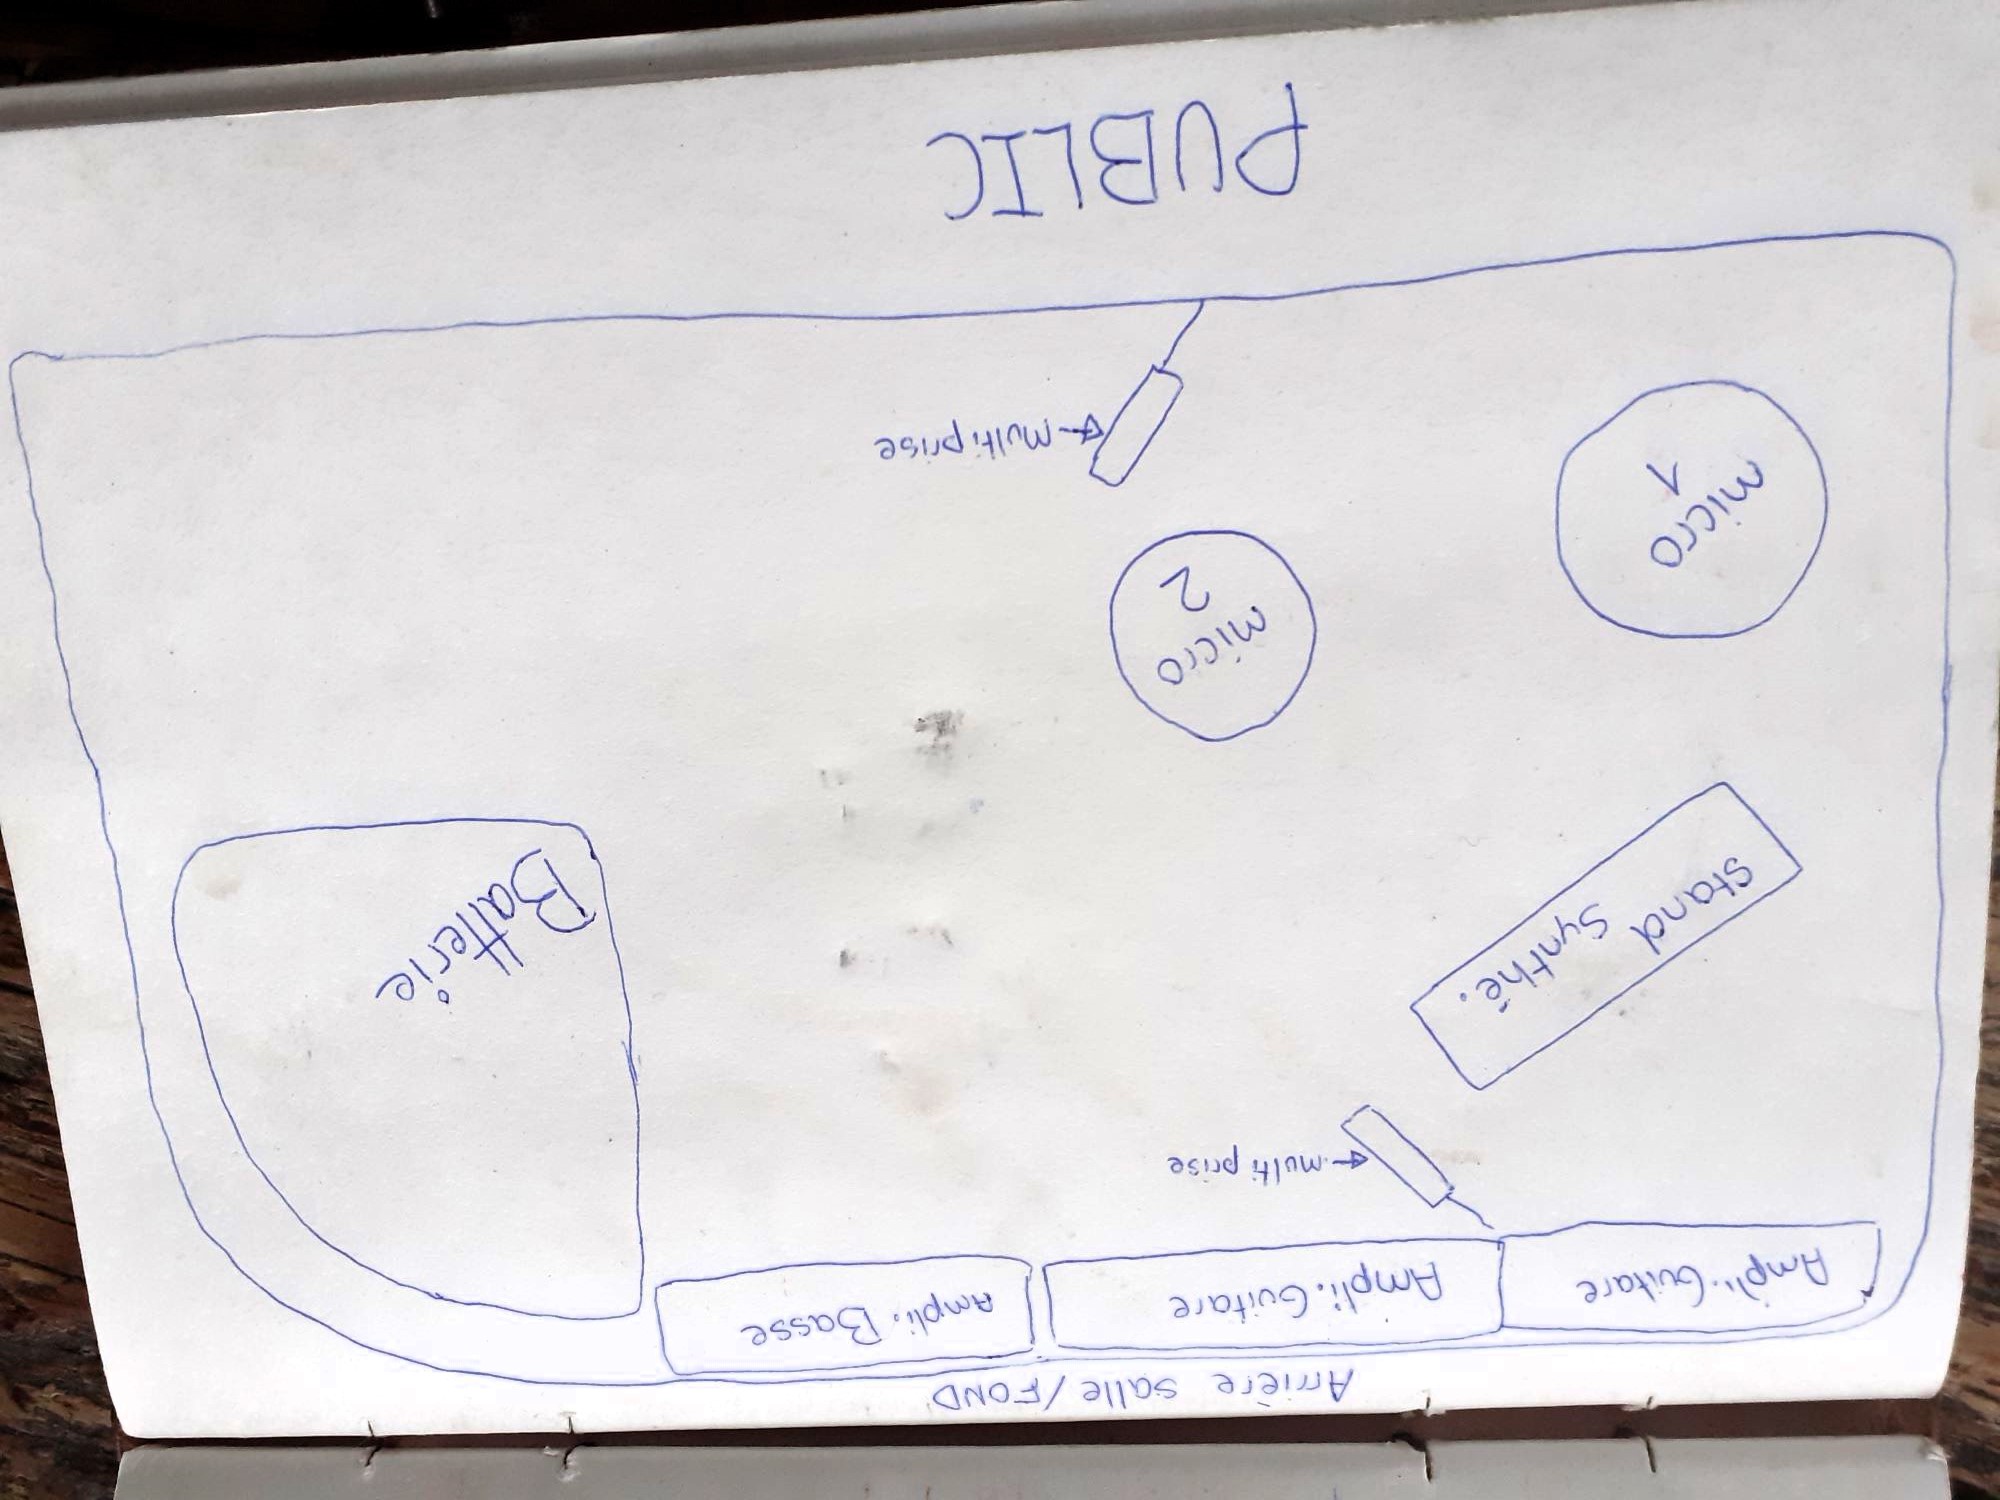 Arrière salle/FOND
Ampli. Guitare
Ampli. Guitare
Ampli. Basse
multiprise
Stand
Synthé.
Batterie
micro
2
micro
1
multiprise
PUBLIC